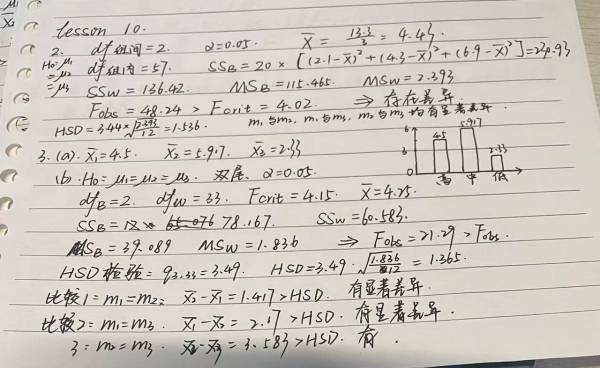 lesson 10.
2. df组间=2. α=0.05. X̄ = 13.3/3 = 4.43.
H₀: μ₁ = μ₂ = μ₃ df组内=57. SSB = 20 × [(2.1-X̄)² + (4.3-X̄)² + (6.9-X̄)²] = 230.93
SSW = 136.42. MSB = 115.465. MSW = 2.393
Fobs = 48.24 > Fcrit = 4.02. ⇒ 存在差异
HSD = 3.44 × √(2.393/12) = 1.536. m₁与m₂, m₁与m₃, m₂与m₃均有显著差异.
3. (a). X̄₁=4.5. X̄₂=5.917. X̄₃=2.33
6 3 0 4.5 5.917 2.33 高 中 低
(b). H₀=μ₁=μ₂=μ₃. 双尾. α=0.05.
dfB=2. dfW=33. Fcrit=4.15. X̄=4.25.
SSB = 12 × 65.076 78.167. SSW=60.583.
MSB = 39.089 MSW = 1.836 ⇒ Fobs = 21.29 > Fobs.
HSD检验= q3.33=3.49. HSD=3.49·√(1.836/12) = 1.365.
比较1=m₁=m₂: X̄₂-X̄₁=1.417>HSD. 有显著差异.
比较2=m₁=m₃. X̄₁-X̄₃=2.17>HSD. 有显著差异.
3=m₂=m₃. X̄₂-X̄₃=3.583>HSD. 有.